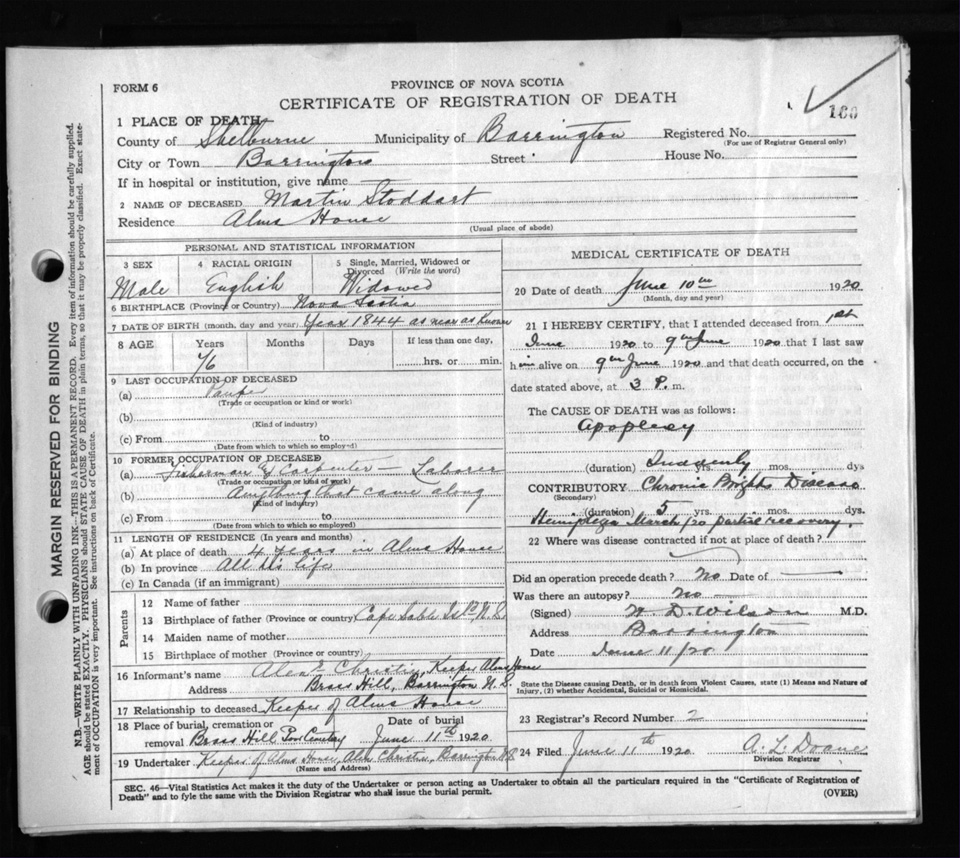 PROVINCE OF NOVA SCOTIA
FORM 6
CERTIFICATE OF REGISTRATION OF DEATH
160
1 PLACE OF DEATH
County of Shelburne Municipality of Barrington Registered No.
(For use of Registrar General only)
City or Town Barrington Street House No.
If in hospital or institution, give name
2 NAME OF DECEASED Martin Stoddart
Residence Alms House
(Usual place of abode)
PERSONAL AND STATISTICAL INFORMATION
3 SEX 4 RACIAL ORIGIN 5 Single, Married, Widowed or
Divorced (Write the word)
Male English Widowed
6 BIRTHPLACE (Province or Country) Nova Scotia
7 DATE OF BIRTH (month, day and year) Year 1844 as near as Known
8 AGE Years Months Days If less than one day,
76 hrs. or min.
9 LAST OCCUPATION OF DECEASED
(a) Pauper
(Trade or occupation or kind or work)
(b)
(Kind of industry)
(c) From to
(Date from which to which so employed)
10 FORMER OCCUPATION OF DECEASED
(a) Fisherman & Carpenter – Laborer
(Trade or occupation or kind of work)
(b) Anything that came along
(Kind of industry)
(c) From to
(Date from which to which so employed)
11 LENGTH OF RESIDENCE (In years and months)
(a) At place of death 4 years in Alms House
(b) In province All his life
(c) In Canada (if an immigrant)
Parents
12 Name of father
13 Birthplace of father (Province or country) Cape Sable Isld, N.S.
14 Maiden name of mother
15 Birthplace of mother (Province or country)
16 Informant's name Alex E Christie, Keeper Alms House
Address Brass Hill, Barrington N.S.
17 Relationship to deceased Keeper of Alms House
18 Place of burial, cremation or Date of burial
removal Brass Hill Poor Cemetary June 11th 1920
19 Undertaker Keeper of Alms House, Alex Christie, Barrington N.S
(Name and Address)
MEDICAL CERTIFICATE OF DEATH
20 Date of death June 10th 1920
(Month, day and year)
21 I HEREBY CERTIFY, that I attended deceased from 1st
June 1920 to 9th June 1920 that I last saw
him alive on 9th June 1920 and that death occurred, on the
date stated above, at 3 P. m.
The CAUSE OF DEATH was as follows:
Apoplexy
(duration) Suddenly yrs. mos. dys
CONTRIBUTORY Chronic Brights Disease
(Secondary)
(duration) 5 yrs. mos. dys
Hemiplegia March/20 partial recovery.
22 Where was disease contracted if not at place of death?
Did an operation precede death? No Date of
Was there an autopsy? No
(Signed) W. D. Wilson M.D.
Address Barrington
Date June 11/20
State the Disease causing Death, or in death from Violent Causes, state (1) Means and Nature of
Injury, (2) whether Accidental, Suicidal or Homicidal.
23 Registrar's Record Number 2
24 Filed June 11th 1920 A. L Doane
Division Registrar
SEC. 46—Vital Statistics Act makes it the duty of the Undertaker or person acting as Undertaker to obtain all the particulars required in the "Certificate of Registration of
Death" and to fyle the same with the Division Registrar who shall issue the burial permit. (OVER)
MARGIN RESERVED FOR BINDING
N.B.—WRITE PLAINLY WITH UNFADING INK—THIS IS A PERMANENT RECORD. Every item of information should be carefully supplied.
AGE should be stated EXACTLY. PHYSICIANS should STATE CAUSE OF DEATH in plain terms, so that it may be properly classified. Exact state-
ment of OCCUPATION is very important. See instructions on back of Certificate.